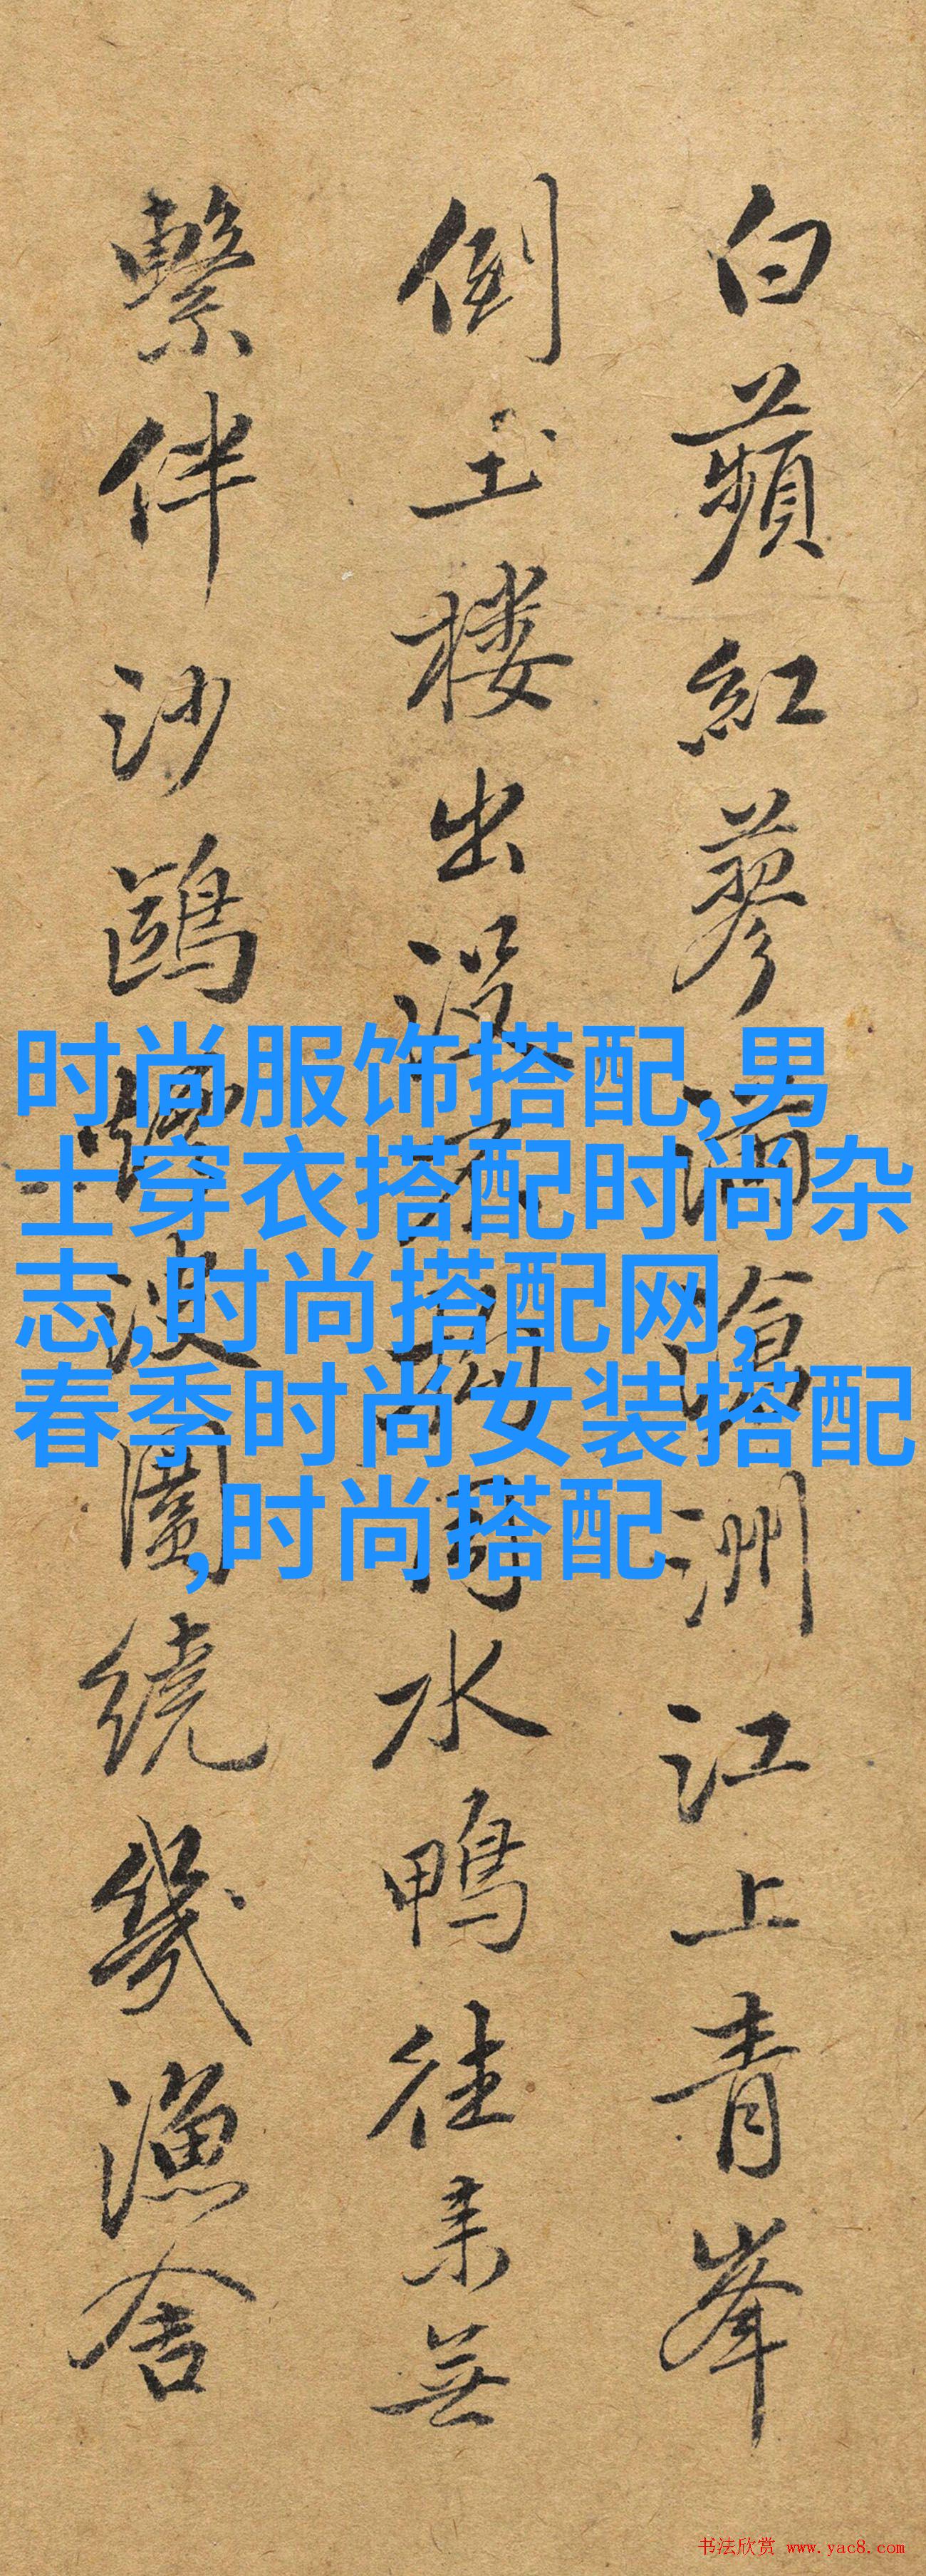 白蘋紅蓼滿滄洲江上青峯
倒玉楼出沒不同水鴨往来無
繫伴沙鷗波圍繞幾漁舍
时尚服饰搭配,男
士穿衣搭配时尚杂
志,时尚搭配网,
春季时尚女装搭配
,时尚搭配
书法欣赏 www.yac8.com